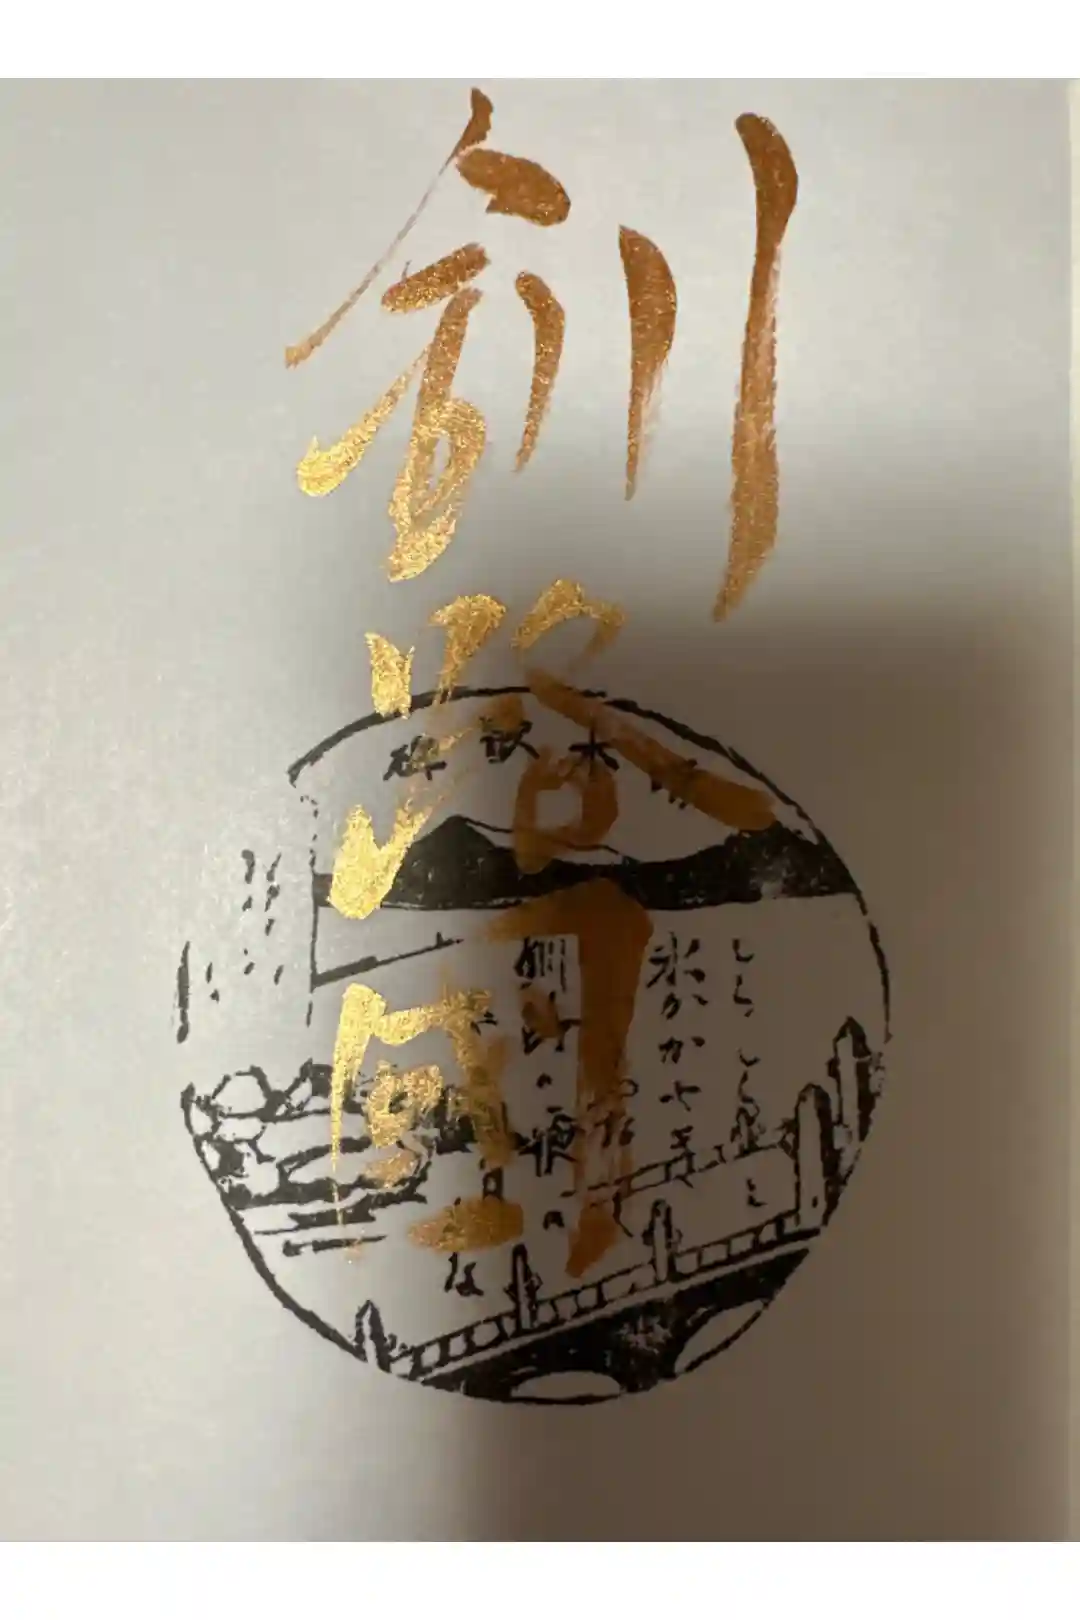 釧路
啄木歌碑
しらしらと
氷かがやき
なく
釧路の海の
月かな